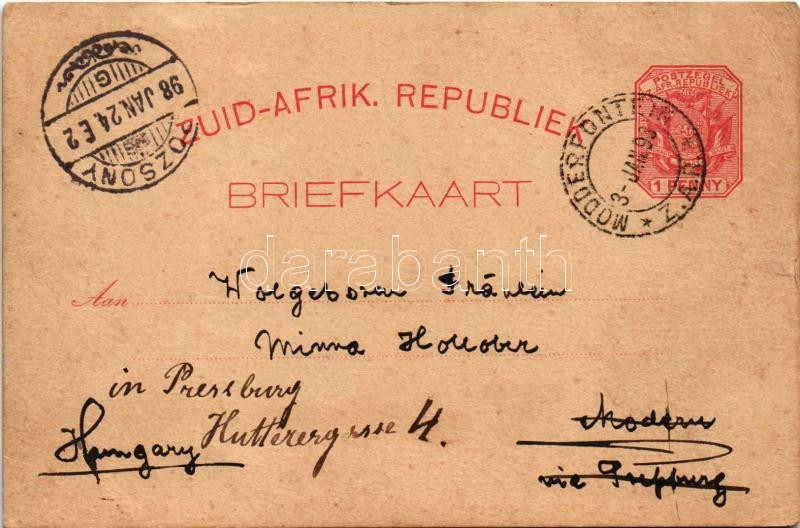 98 JAN. 24. E 2
G
POZSONY
ZUID-AFRIK. REPUBLIEK
POSTZEGEL
Z. AFR. REPUBLIEK
1 PENNY
MODDERFONTEIN * Z.A.R. *
3-JAN 98
BRIEFKAART
darabanth
Aan Wolgeborene Fräulein
Minna Hollober
in Pressburg
Hungary Hutterergasse 4.
Modern
via Preßburg